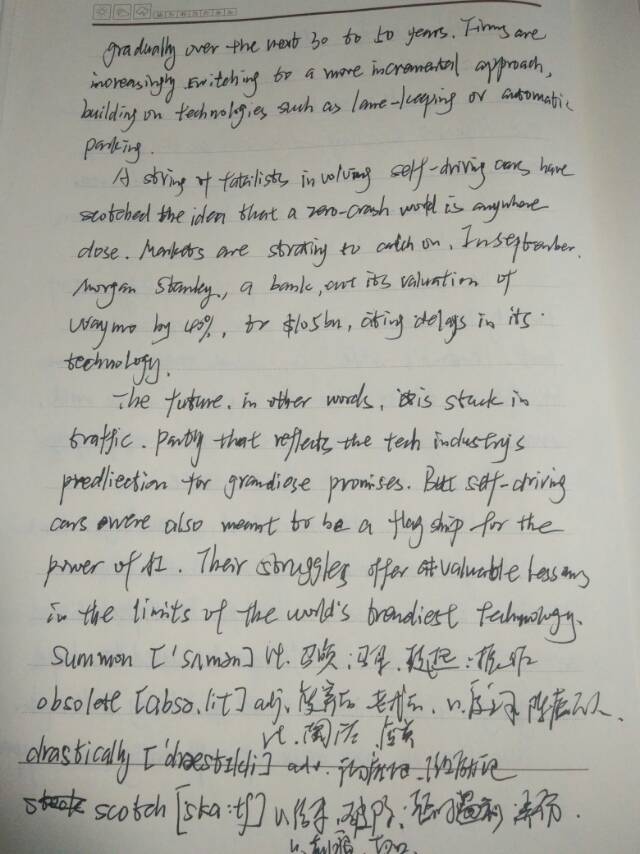 gradually over the next 30 to 50 years. Firms are
increasingly switching to a more incremental approach,
building on technologies such as lane-keeping or automatic
parking.
A string of fatalists involving self-driving cars have
scotched the idea that a zero-crash world is anywhere
close. Markets are strating to catch on. In september.
Morgan Stanley, a bank, cut its valuation of
Waymo by 40%, to $105bn, citing delays in its
technology.
The future, in other words, is stuck in
traffic. Partly that reflects the tech industry's
predliection for grandiose promises. But self-driving
cars were also meant to be a flagship for the
power of AI. Their struggles offer valuable lessons
in the limits of the world's trendiest technology.
summon ['sʌmən] vt. 召唤;召集.
obsolete [ˈabsə,lit] adj. 废弃的 老式的. n. 废词 陈腐的人.
vt. 淘汰 废弃
drastically ['dræstɪkli] adv.
scotch [skɑ:tʃ]